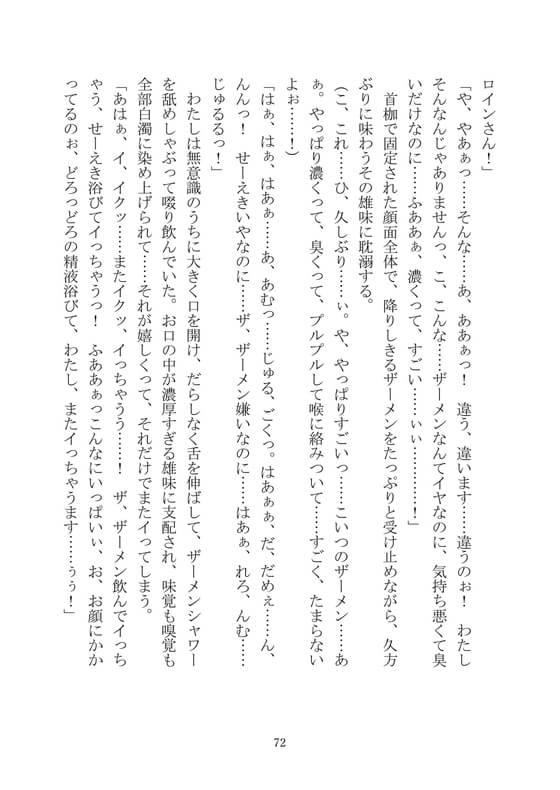 ロインさん！」
「や、やあぁっ……そんな……あ、ああぁっ！　違う、違います……違うのぉ！　わたし
そんなんじゃありませんっ、こ、こんな……ザーメンなんてイヤなのに、気持ち悪くて臭
いだけなのに……ふああぁ、濃くって、すごい……ぃぃ…………！」
　首枷で固定された顔面全体で、降りしきるザーメンをたっぷりと受け止めながら、久方
ぶりに味わうその雄味に耽溺する。
（こ、これ……ひ、久しぶり……ぃ。や、やっぱりすごいっ……こいつのザーメン……あ
ぁ。やっぱり濃くって、臭くって、プルプルして喉に絡みついて……すごく、たまらない
よぉ……！）
「はぁ、はぁ、はあぁ……あ、あむっ……じゅる、ごくっ。はあぁぁ、だ、だめぇ……ん、
んんっ！　せーえきいやなのに……ザ、ザーメン嫌いなのに……はあぁ、れろ、んむ……
じゅるるっ！」
　わたしは無意識のうちに大きく口を開け、だらしなく舌を伸ばして、ザーメンシャワー
を舐めしゃぶって啜り飲んでいた。お口の中が濃厚すぎる雄味に支配され、味覚も嗅覚も
全部白濁に染め上げられて……それが嬉しくって、それだけでまたイってしまう。
「あはぁ、イ、イクッ……またイクッ、イっちゃうう……！　ザ、ザーメン飲んでイっち
ゃう、せーえき浴びてイっちゃうっ！　ふああぁっこんなにいっぱいぃ、お、お顔にかか
ってるのぉ、どろっどろの精液浴びて、わたし、またイっちゃうます……ぅぅ！」
72